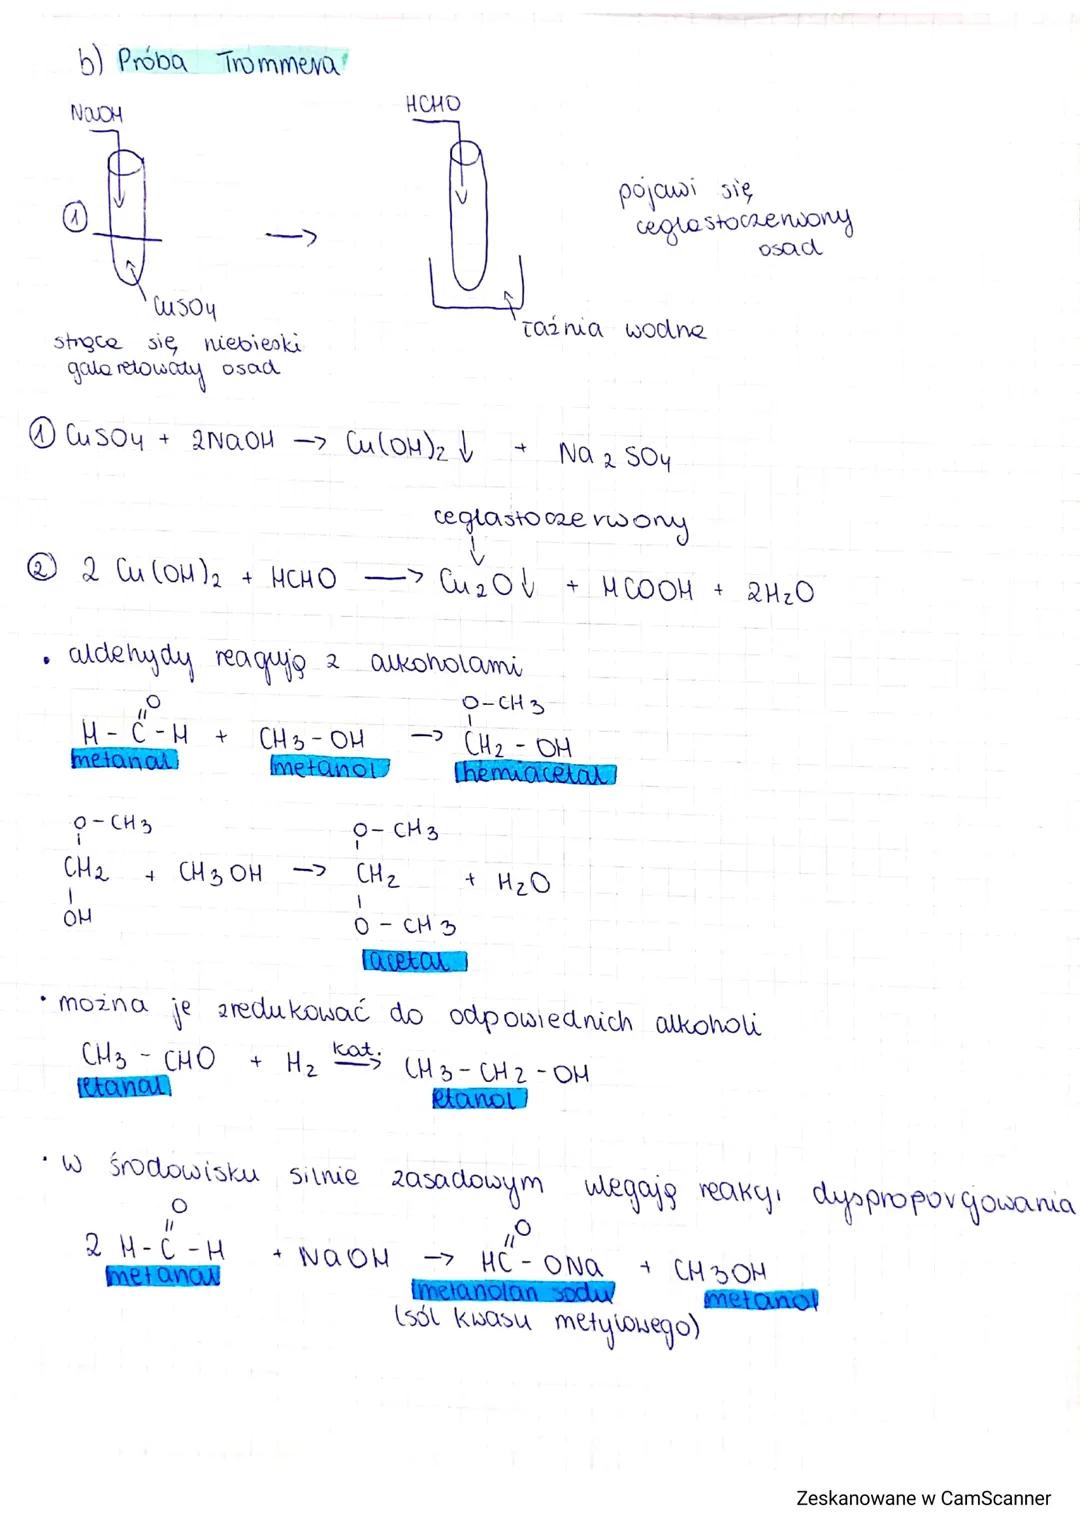 b) Próba Trommera
NaOH
HCHO
①
→
CuSO4
strąca się niebieski
galaretowaty osad
pojawi się
ceglastoczerwony
osad
łaźnia wodna
① CuSO4 + 2NaOH → Cu(OH)2 ↓ + Na2SO4
ceglastoczerwony
↓
② 2 Cu(OH)2 + HCHO → Cu2O↓ + HCOOH + 2H2O
• aldehydy reagują z alkoholami
O O-CH3
H - C - H + CH3-OH → CH2 - OH
metanal metanol hemiacetal
O-CH3 O-CH3
CH2 + CH3OH → CH2 + H2O
OH O-CH3
acetal
• można je zredukować do odpowiednich alkoholi
CH3 - CHO + H2 kat. → CH3-CH2-OH
etanal etanol
• w środowisku silnie zasadowym ulegają reakcji dysproporcjowania
O O
2 H-C-H + NaOH → HC-ONa + CH3OH
metanal metanolan sodu metanol
(sól kwasu metylowego)
Zeskanowane w CamScanner